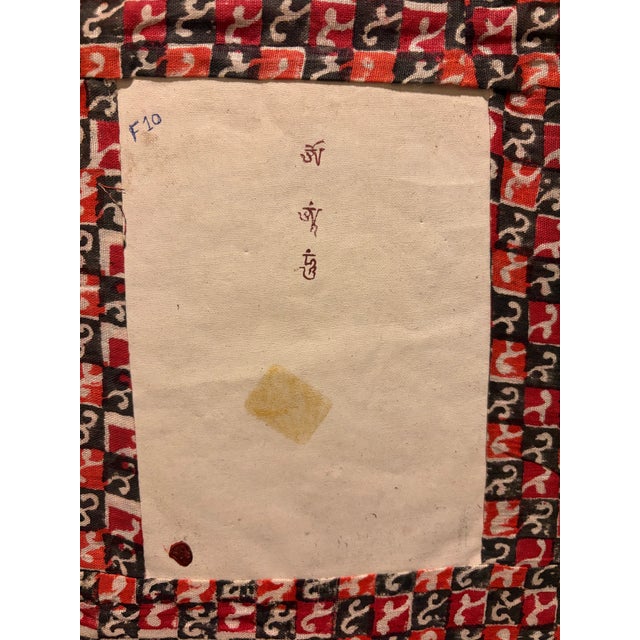 F10
ༀ
ཨཱཿ
ཧཱུྃ